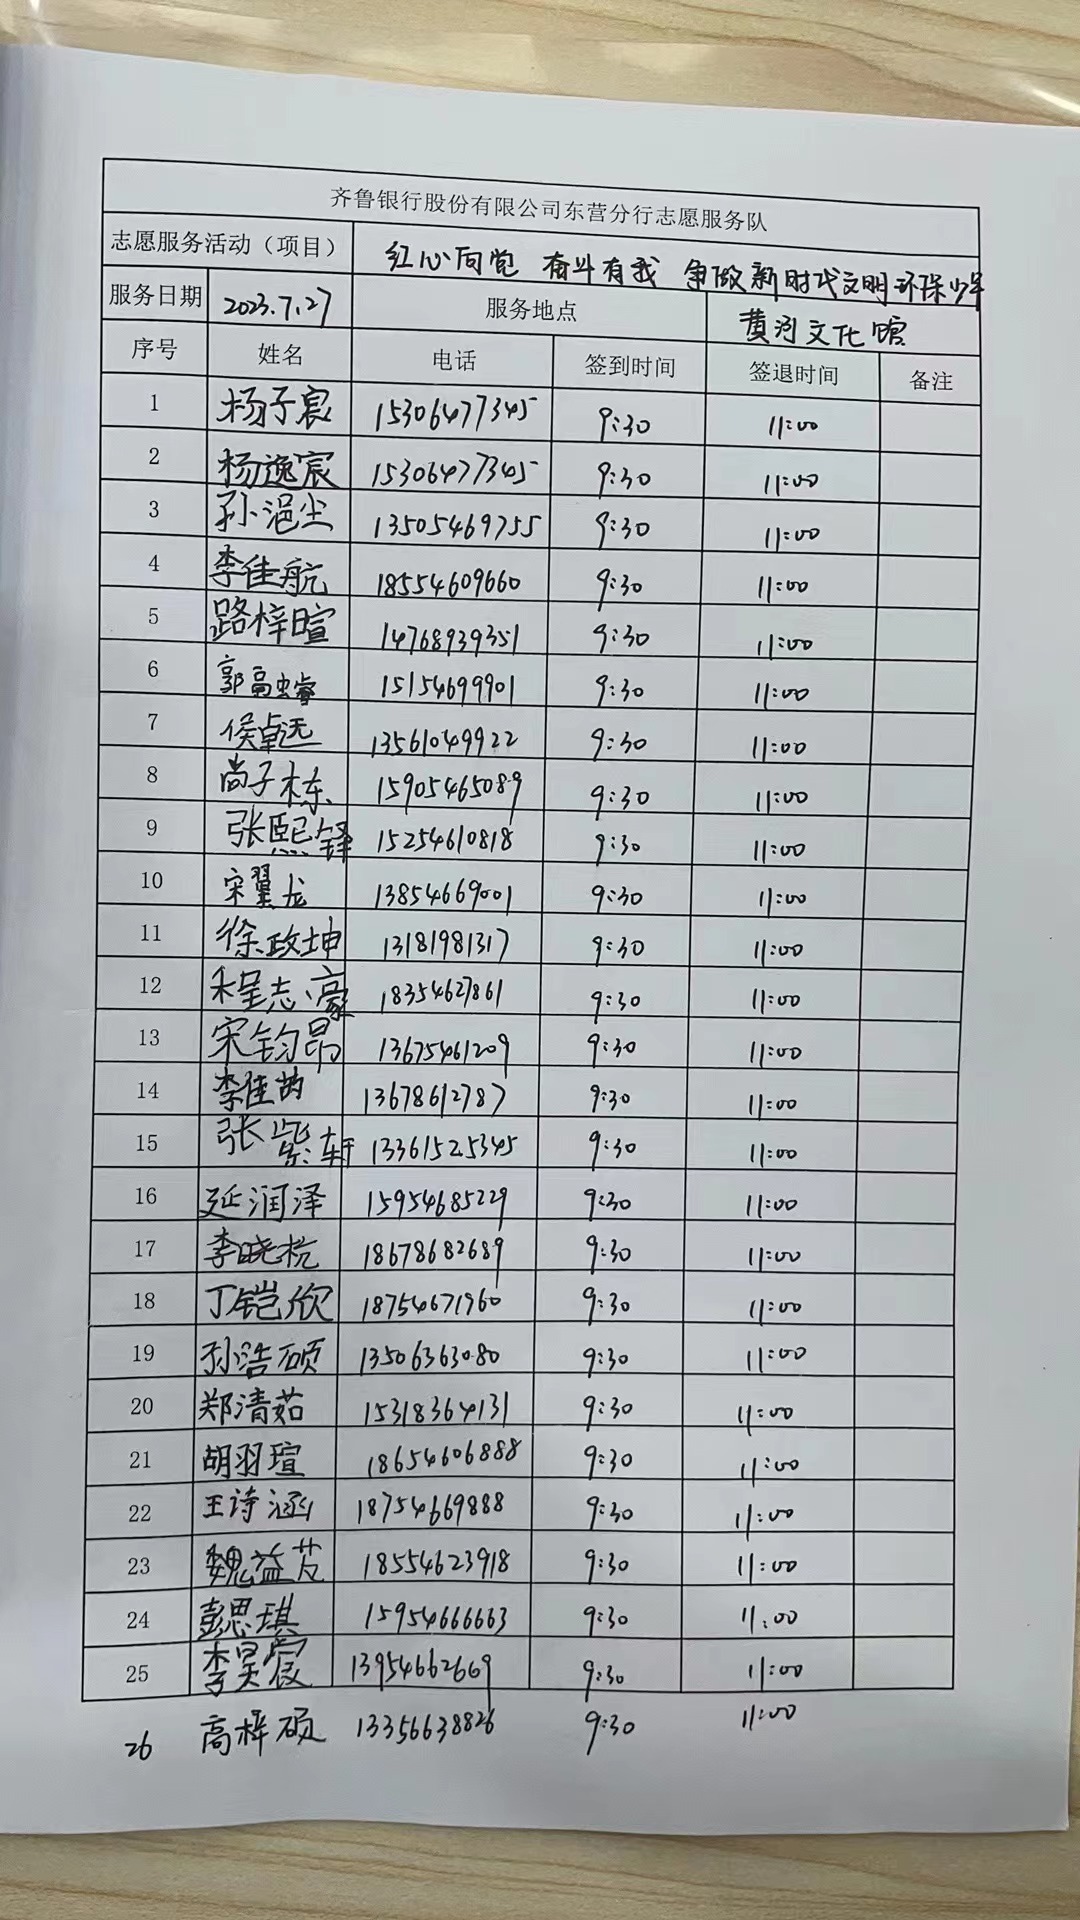 齐鲁银行股份有限公司东营分行志愿服务队
志愿服务活动（项目） 红心向党 奋斗有我 争做新时代文明环保少年
服务日期 2023.7.27 服务地点 黄河文化馆
序号 姓名 电话 签到时间 签退时间 备注
1 杨子宸 15306477345 9:30 11:00
2 杨逸宸 15306477345 9:30 11:00
3 孙浥尘 13505469755 9:30 11:00
4 李佳航 18554609660 9:30 11:00
5 路梓暄 14768939351 9:30 11:00
6 郭高睿 15154699901 9:30 11:00
7 侯卓远 13561049922 9:30 11:00
8 尚子栋 15905465089 9:30 11:00
9 张熙铎 15254610818 9:30 11:00
10 宋翼龙 13854669001 9:30 11:00
11 徐政坤 13181981317 9:30 11:00
12 程志豪 18354627861 9:30 11:00
13 宋钧昂 13675461209 9:30 11:00
14 李佳 13678612787 9:30 11:00
15 张紫轩 13361525345 9:30 11:00
16 延润泽 15954685229 9:30 11:00
17 李晓杭 18678682689 9:30 11:00
18 丁铠欣 18754671960 9:30 11:00
19 孙浩硕 13506363080 9:30 11:00
20 郑清茹 15318364131 9:30 11:00
21 胡羽瑄 18654606888 9:30 11:00
22 王诗涵 18754669888 9:30 11:00
23 魏益 18554623918 9:30 11:00
24 彭思琪 15954666663 9:30 11:00
25 李昊宸 13954662669 9:30 11:00
26 高梓硕 13356638826 9:30 11:00